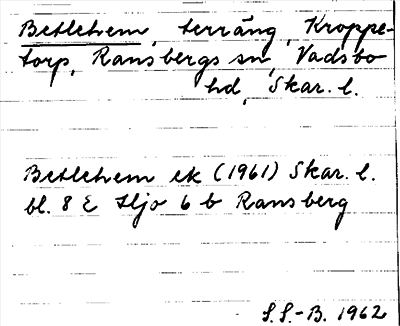 Betlehem, terräng, Kroppe-
torp, Ransbergs sn, Vadsbo
hd, Skar. l.
Betlehem ek (1961) Skar. l.
bl. 8 E Hjo 6 b Ransberg
S.S.-B. 1962